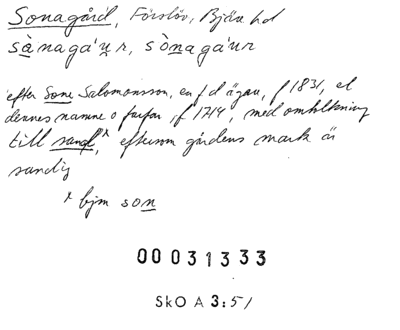 Sonagård, Förslöv, Bjäre hd
sànaga'ụr, sònaga'ụr
efter Sone Salomonsson, en f d ägare, f 1831, el
dennes namne o farfar, f 1714, med omtolkning
till sand,* eftersom gårdens mark är
sandig
* bjm son
00031333
SkO A 3:51